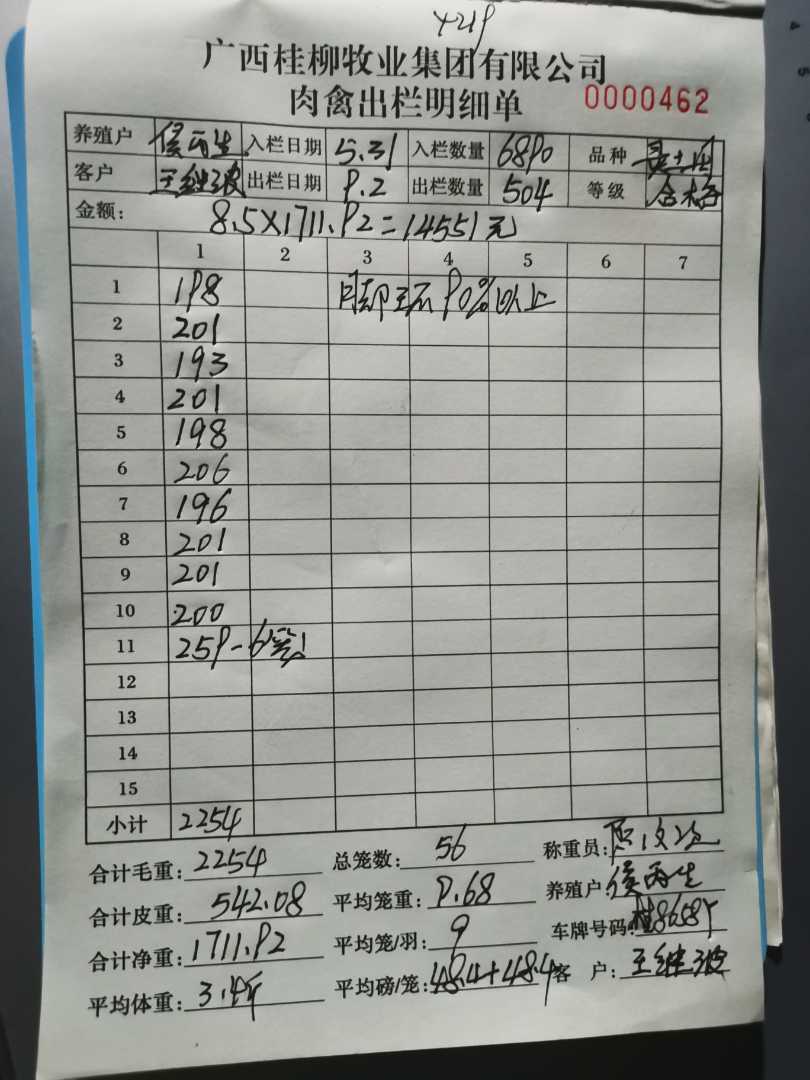 广西桂柳牧业集团有限公司
肉禽出栏明细单 0000462
养殖户 侯丙生 入栏日期 5.31 入栏数量 6890 品种
客户 王继波 出栏日期 9.2 出栏数量 504 等级 合格
金额: 8.5×1711.92=14551元
1 2 3 4 5 6 7
1 198 90%以上
2 201
3 193
4 201
5 198
6 206
7 196
8 201
9 201
10 200
11 259-6笼
12
13
14
15
小计 2254
合计毛重: 2254 总笼数: 56 称重员:
合计皮重: 542.08 平均笼重: 9.68 养殖户 侯丙生
合计净重: 1711.92 平均笼/羽: 9 车牌号码:
平均体重: 3.4斤 平均磅/笼: 48.4+48.4 客 户: 王继波